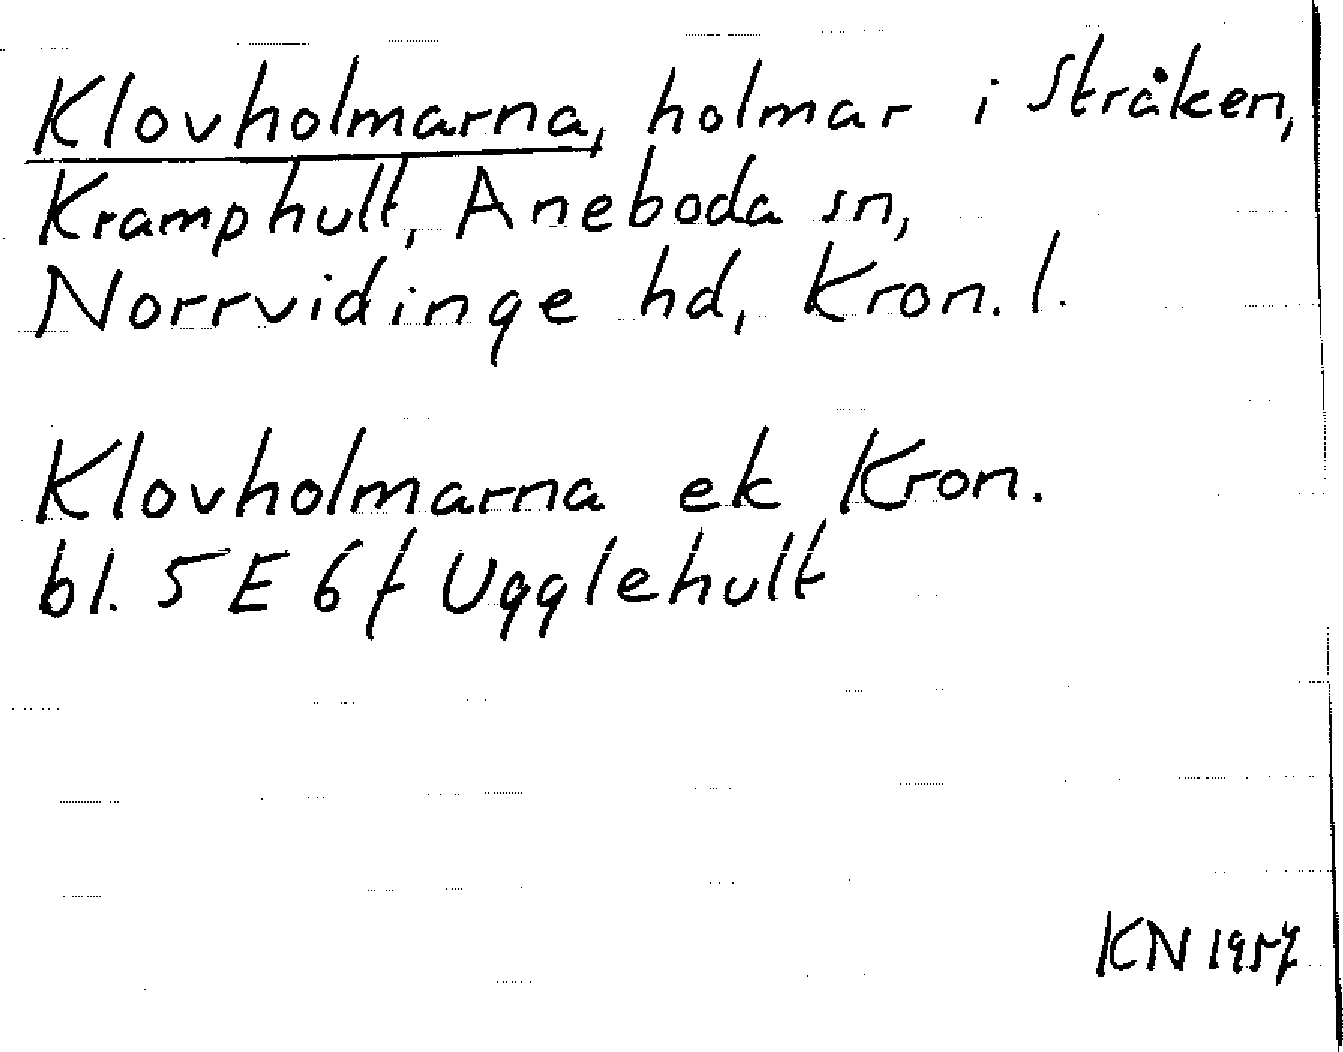 Klovholmarna, holmar i Stråken,
Kramphult, Aneboda sn,
Norrvidinge hd, Kron. l.
Klovholmarna ek Kron.
bl. 5 E 6 f Ugglehult
KN 1957